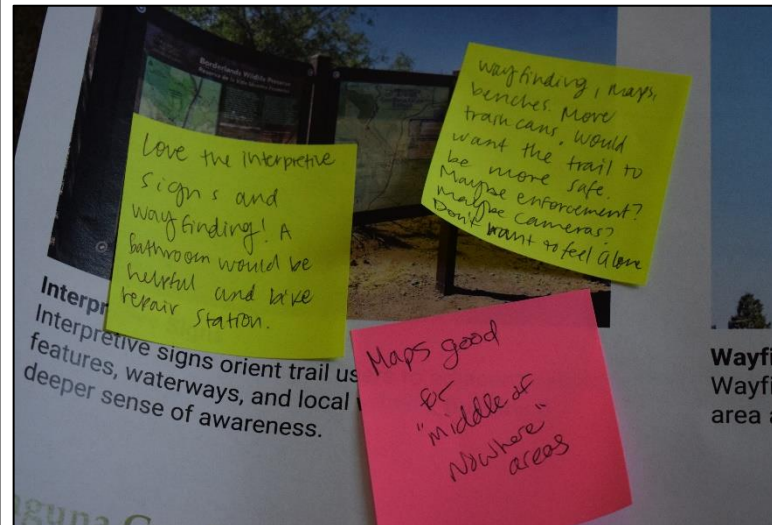 Borderlands Wildlife Preserve
Love the Interpretive
signs and
wayfinding! A
bathroom would be
helpful and bike
repair station.
wayfinding, maps,
benches. More
trash cans. Would
want the trail to
be more safe.
Maybe enforcement?
Maybe cameras?
Don't want to feel alone
Maps good
for
"middle of
Nowhere"
areas
Interpr
Interpretive signs orient trail us
features, waterways, and local
deeper sense of awareness.
Wayfi
Wayfi
area a
aguna